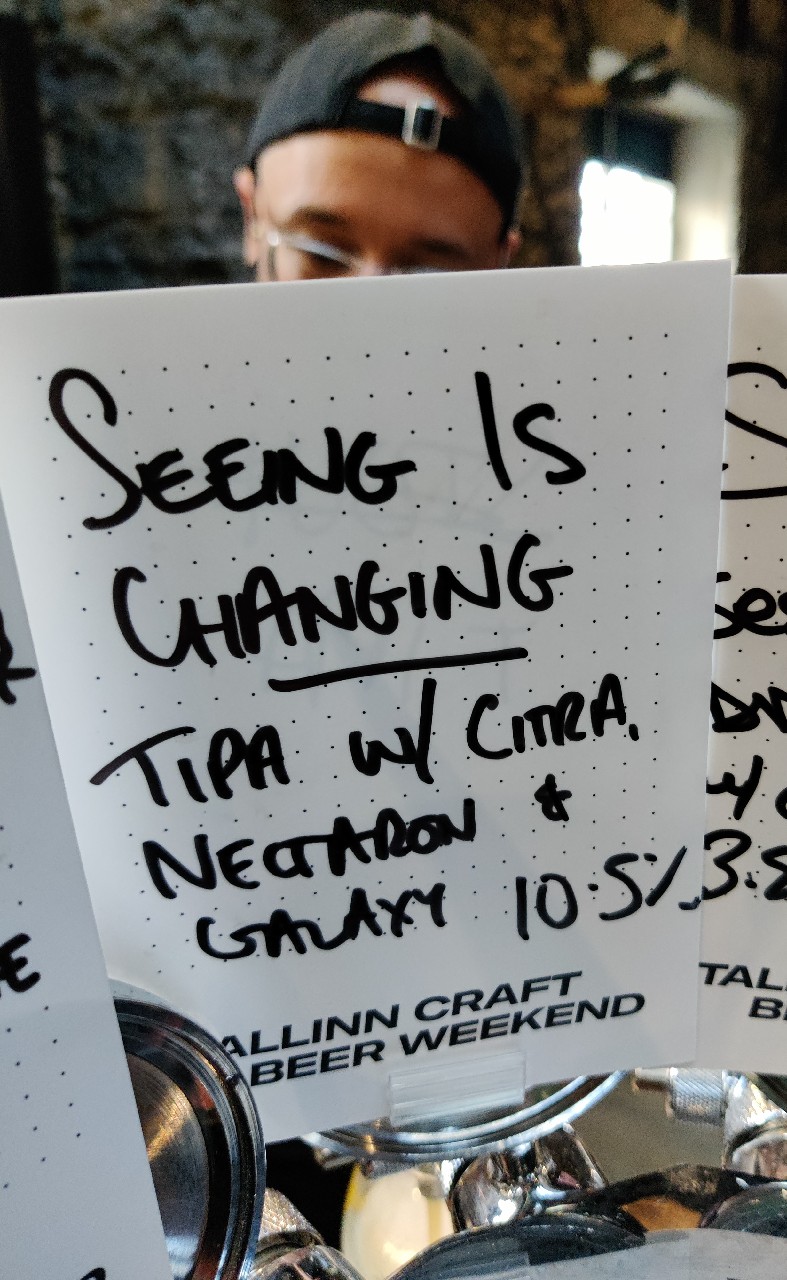 SEEING IS
CHANGING
TIPA W/ CITRA,
NECTARON &
GALAXY 10.5%
TALLINN CRAFT
BEER WEEKEND